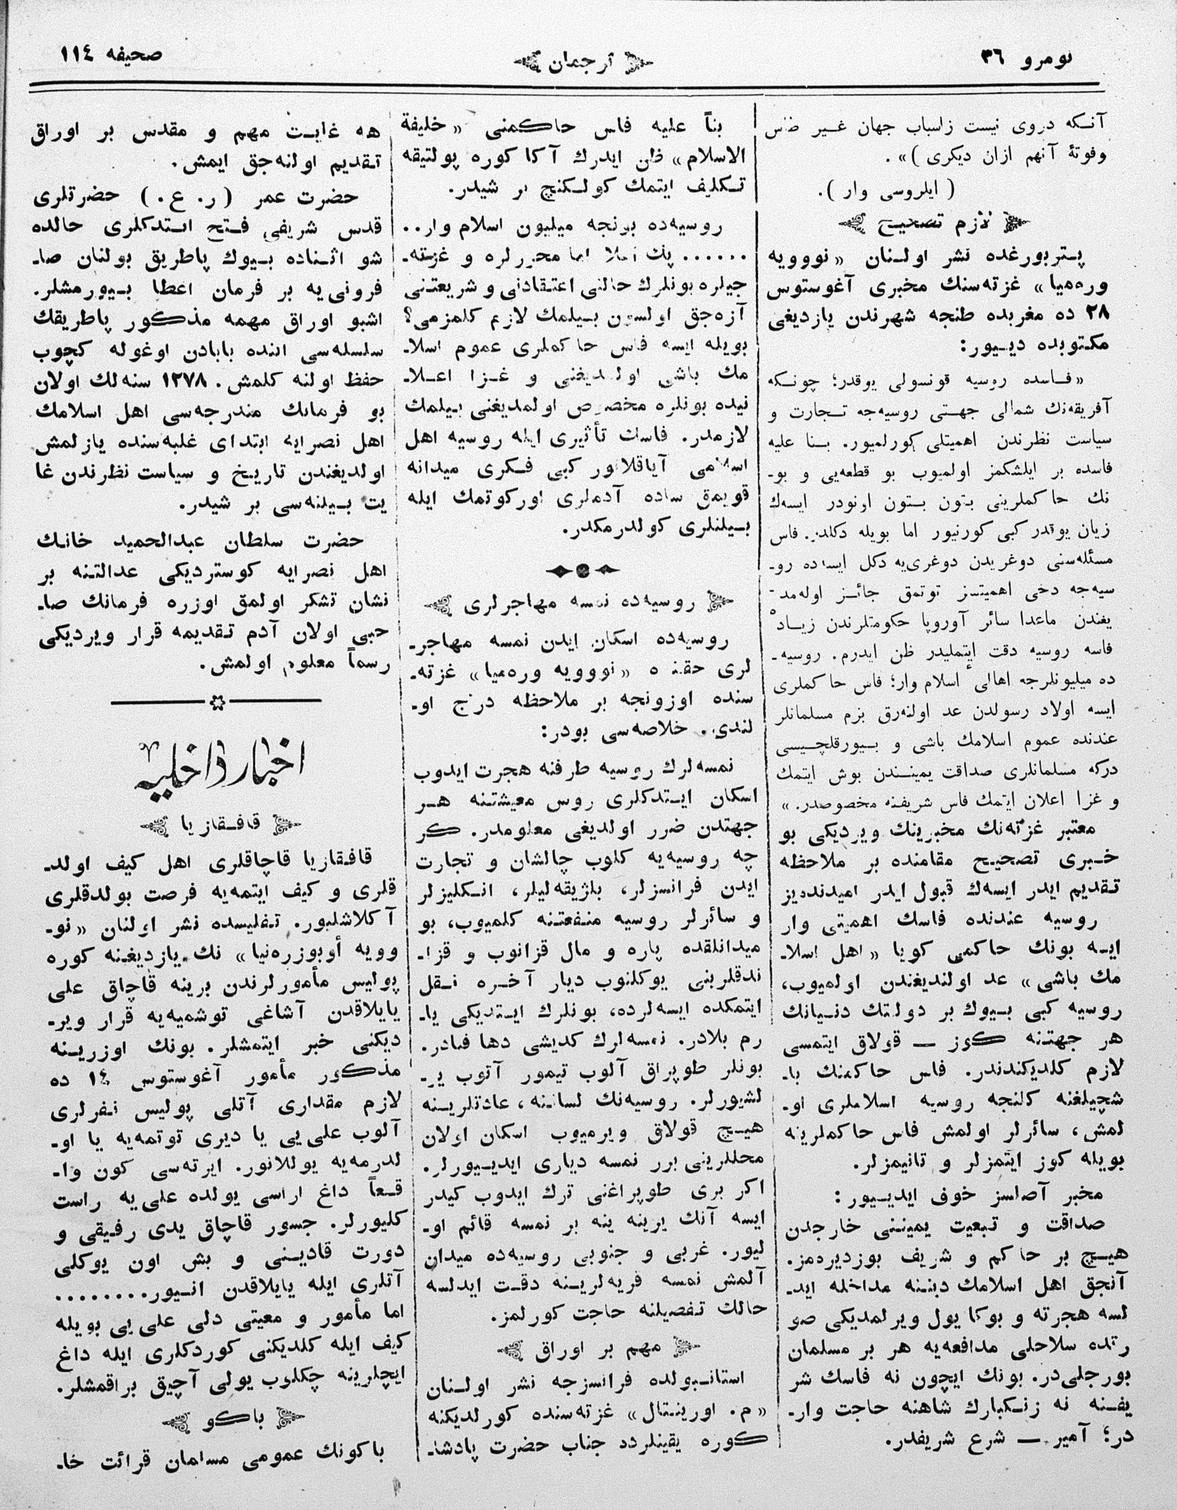 نومرو ٣٦
ترجمان
صحيفه ١١٤
آنكه دروى نيست زاسباب جهان غـير طاس
وفوتهٔ آنهم ازان ديكرى )» .
( ايلروسى وار ).
لازم تصحيح
پـتربورغده نشر اولـنان «نووويه
وره‌ميا» غزته‌سنك مخبرى آغوستوس
٢٨ ده مغربده طنجه شهرندن يازديغى
مكـتوبده ديـيور:
«فـاسده روسيه قونسولى يوقدر؛ چونـكه
آفريقه‌نك شمالى جهـتى روسيه‌جه تـجارت و
سياست نظرندن اهميتلى كورلميور. بـنا عليه
فاسده بر ايلشكمز اولميوب بو قطعه‌يى و بو-
نك حاكملرينى بتون بـتون اونودر ايسه‌ك
زيان يوقدر كبى كورنيور اما بويله دكلدر. فاس
مسئله‌سنى دوغريدن دوغرى‌يه دكل ايسه‌ده رو-
سيه‌جه دخى اهميتسز توتمق جائـز اوله‌مد-
يغندن ماعدا سائر آوروپا حكومتلرندن زيـاده
فاسه روسيه دقت ايتمليدر ظن ايدرم. روسيه-
ده ميليونلرجه اهالىٔ اسلام وار؛ فاس حاكملرى
ايسه اولاد رسولدن عد اولنه‌رق بزم مسلمانلر
عندنده عموم اسلامك باشى و بـيورقلچـيسى
دركه مسلمانلرى صداقت يميـنـندن بوش ايتمك
و غزا اعلان ايتمك فاس شريفـنه مخصوصدر.»
معتبر غزته‌نك مخبرينك ويرديكى بو
خـبرى تصحيح مقامنده بر ملاحظه
تـقديم ايدر ايسه‌ك قبول ايدر اميدنده‌يز
روسيه عندنده فاسك اهميتى وار
ايـه بونك حاكمى كويا «اهل اسلا-
مك باشى» عد اولنديغندن اولميوب،
روسيه كبى بـيوك بر دولتك دنـيانك
هر جهتـنه كوز — قولاق ايتمسى
لازم كلديكندندر. فاس حاكمنك با-
شچيلغنه كالنجه روسيه اسلاملرى او-
لمش، سائرلر اولمش فاس حاكملرينه
بويله كوز ايتمزلر و تانيمزلر.
مخبر آصلسز خوف ايديـيور:
صداقت و تبعيت يميـنـنى خارجدن
هيـچ بر حاكم و شريف بوزديره‌مز.
آنجق اهل اسلامك ديـنـنه مداخله ايد-
لسه هجرته و بوكا يول ويرلمديكى صو
رتده سلاحلى مدافعه‌يه هر بر مسلمان
بورجلى‌در. بونك ايچون نه فاسك شر
يفـنه نه زنـكبارك شاهنه حاجت وار-
در؛ آمير — شرع شريفدر.
بنأ عليه فاس حاكمنى «خليفة
الاسلام» ظن ايدرك آكا كوره پولتيقه
تـكليف ايتمك كولـكنج بر شيدر.
روسيه‌ده بونجه ميليون اسلام وار..
...... پك اعلا اما محررلره و غزته-
جيلره بونلرك حالنى اعتقادنى و شريعتـنى
آزه‌جق اولسون بـيلمك لازم كلمزمى؟
بويله ايسه فاس حاكملرى عموم اسلا-
مك باشى اولمديغنى و غـزا اعـلا-
نيده بونلره مخصوص اولمديغنى بـيلمك
لازمدر. فاسك تأثيرى ايله روسيه اهل
اسلامى آياقلانور كبى فـكرى ميدانه
قويمق ساده آدملرى اوركوتمك ايله
بـيلنلرى كولدرمكدر.
روسيه‌ده نمسه مهاجرلرى
روسيه‌ده اسكان ايدن نمسه مهاجر-
لرى حقنده «نووويه وره‌ميا» غزته-
سنده اوزونجه بر ملاحظه درج او-
لندى. خلاصه‌سى بودر:
نمسه‌لرك روسيه طرفنه هجرت ايدوب
اسكان ايـتدكلرى روس معيشتـنه هـر
جهتدن ضرر اولديغى معلومدر. كر
چه روسيه‌يه كلوب چالشان و تجارت
ايدن فرانسزلر، بلژيقه‌ليلر، انـكليزلر
و سائرلر روسيه منـفعتـنه كلميوب، بو
ميدانلقده پاره و مال قزانوب و قزا-
ندقلرينى يوكلنوب ديار آخـره نـقل
ايتمكده ايسه‌لرده، بونلرك ايـتديكى يا-
رم بلادر. نمسه‌لرك كديشى دها فنادر.
بونلر طوپراق آلوب تيمور آتوب ير-
لشيورلر. روسيه‌نك لسانـنه، عادتلريـنه
هيـچ قولاق ويرميوب اسكان اولان
محللرينى برر نمسه ديارى ايديـيورلر.
اكر برى طوپراغنى ترك ايدوب كيدر
ايسه آنك يرينه ينه بر نمسه قائم او-
ليور. غربى و جنوبى روسيه‌ده ميدان
آلمش نمسه قريه‌لريـنه دقـت ايدلسه
حالك تـفصيلنه حاجت كورلمز.
مهم بر اوراق
استانـبولده فرانسزجه نشر اولـنان
«م. اورينـتال» غزته‌سنده كورلديكنه
كوره يقينلرده جناب حضرت پادشا-
هه غايـت مهم و مقدس بر اوراق
تـقديم اولنه‌جق ايمش.
حضرت عمر (ر. ع.) حضرتلرى
قدس شريفى فـتح ايـتدكلرى حالده
شو اثـناده بـيوك پاطريق بولنان صا-
فرونى‌يه بر فرمان اعطا بـيورمشلر.
اشبو اوراق مهمه مذكور پاطريقك
سلسله‌سى الـنده بابادن اوغوله كچوب
حفظ اولنه كلمش. ١٢٧٨ سنه‌لك اولان
بو فرمانك مندرجه‌سى اهل اسلامك
اهل نصرايه ابتداى غلبه‌سنده يازلمش
اولديغندن تاريخ و سياست نظرندن غا
يت بـيلنه‌سى بر شيدر.
حضرت سلطان عبدالحميد خانـك
اهل نصرايه كوستردیكى عدالتـنه بر
نشان تشكر اولمق اوزره فرمانك صا-
حبى اولان آدم تـقديمه قرار ويرديكى
رسماً معلوم اولمش.
اخبار داخليه
قافـقازيا
قافـقازيا قاچاقلرى اهل كيف اولد-
قلرى و كيف ايتمه‌يه فرصت بولدقلرى
آكلاشليور. تـفليسده نشر اولنان «نو-
وويه أوبوزره‌نيا» نك يازديغـنه كوره
پوليس مأمورلرندن برينه قاچاق على
يايلاقدن آشاغى توشميه‌يه قرار وير-
ديكنى خبر ايتمشلر. بونك اوزريـنه
مذكور مأمور آغوستوس ١٤ ده
لازم مقدارى آتلى پوليس نـفرلرى
آلوب على‌يى يا ديرى توتمه‌يه يا او-
لدرمه‌يه يوللانور. ايرته‌سى كون وا-
قـعأ داغ اراسى يولده على‌يه راست
كليورلر. جسور قاچاق يدى رفـيقى و
دورت قاديـنى و بش اون يوكلى
آتلرى ايله يايلاقدن انـيور........
اما مأمور و معيتى دلى على يى بويله
كيف ايله كلديكنى كوردكلرى ايله داغ
ايچلرينه چكلوب يولى آچيق براقمشلر.
باكو
باكونك عمومى مسلمان قرائت خا-